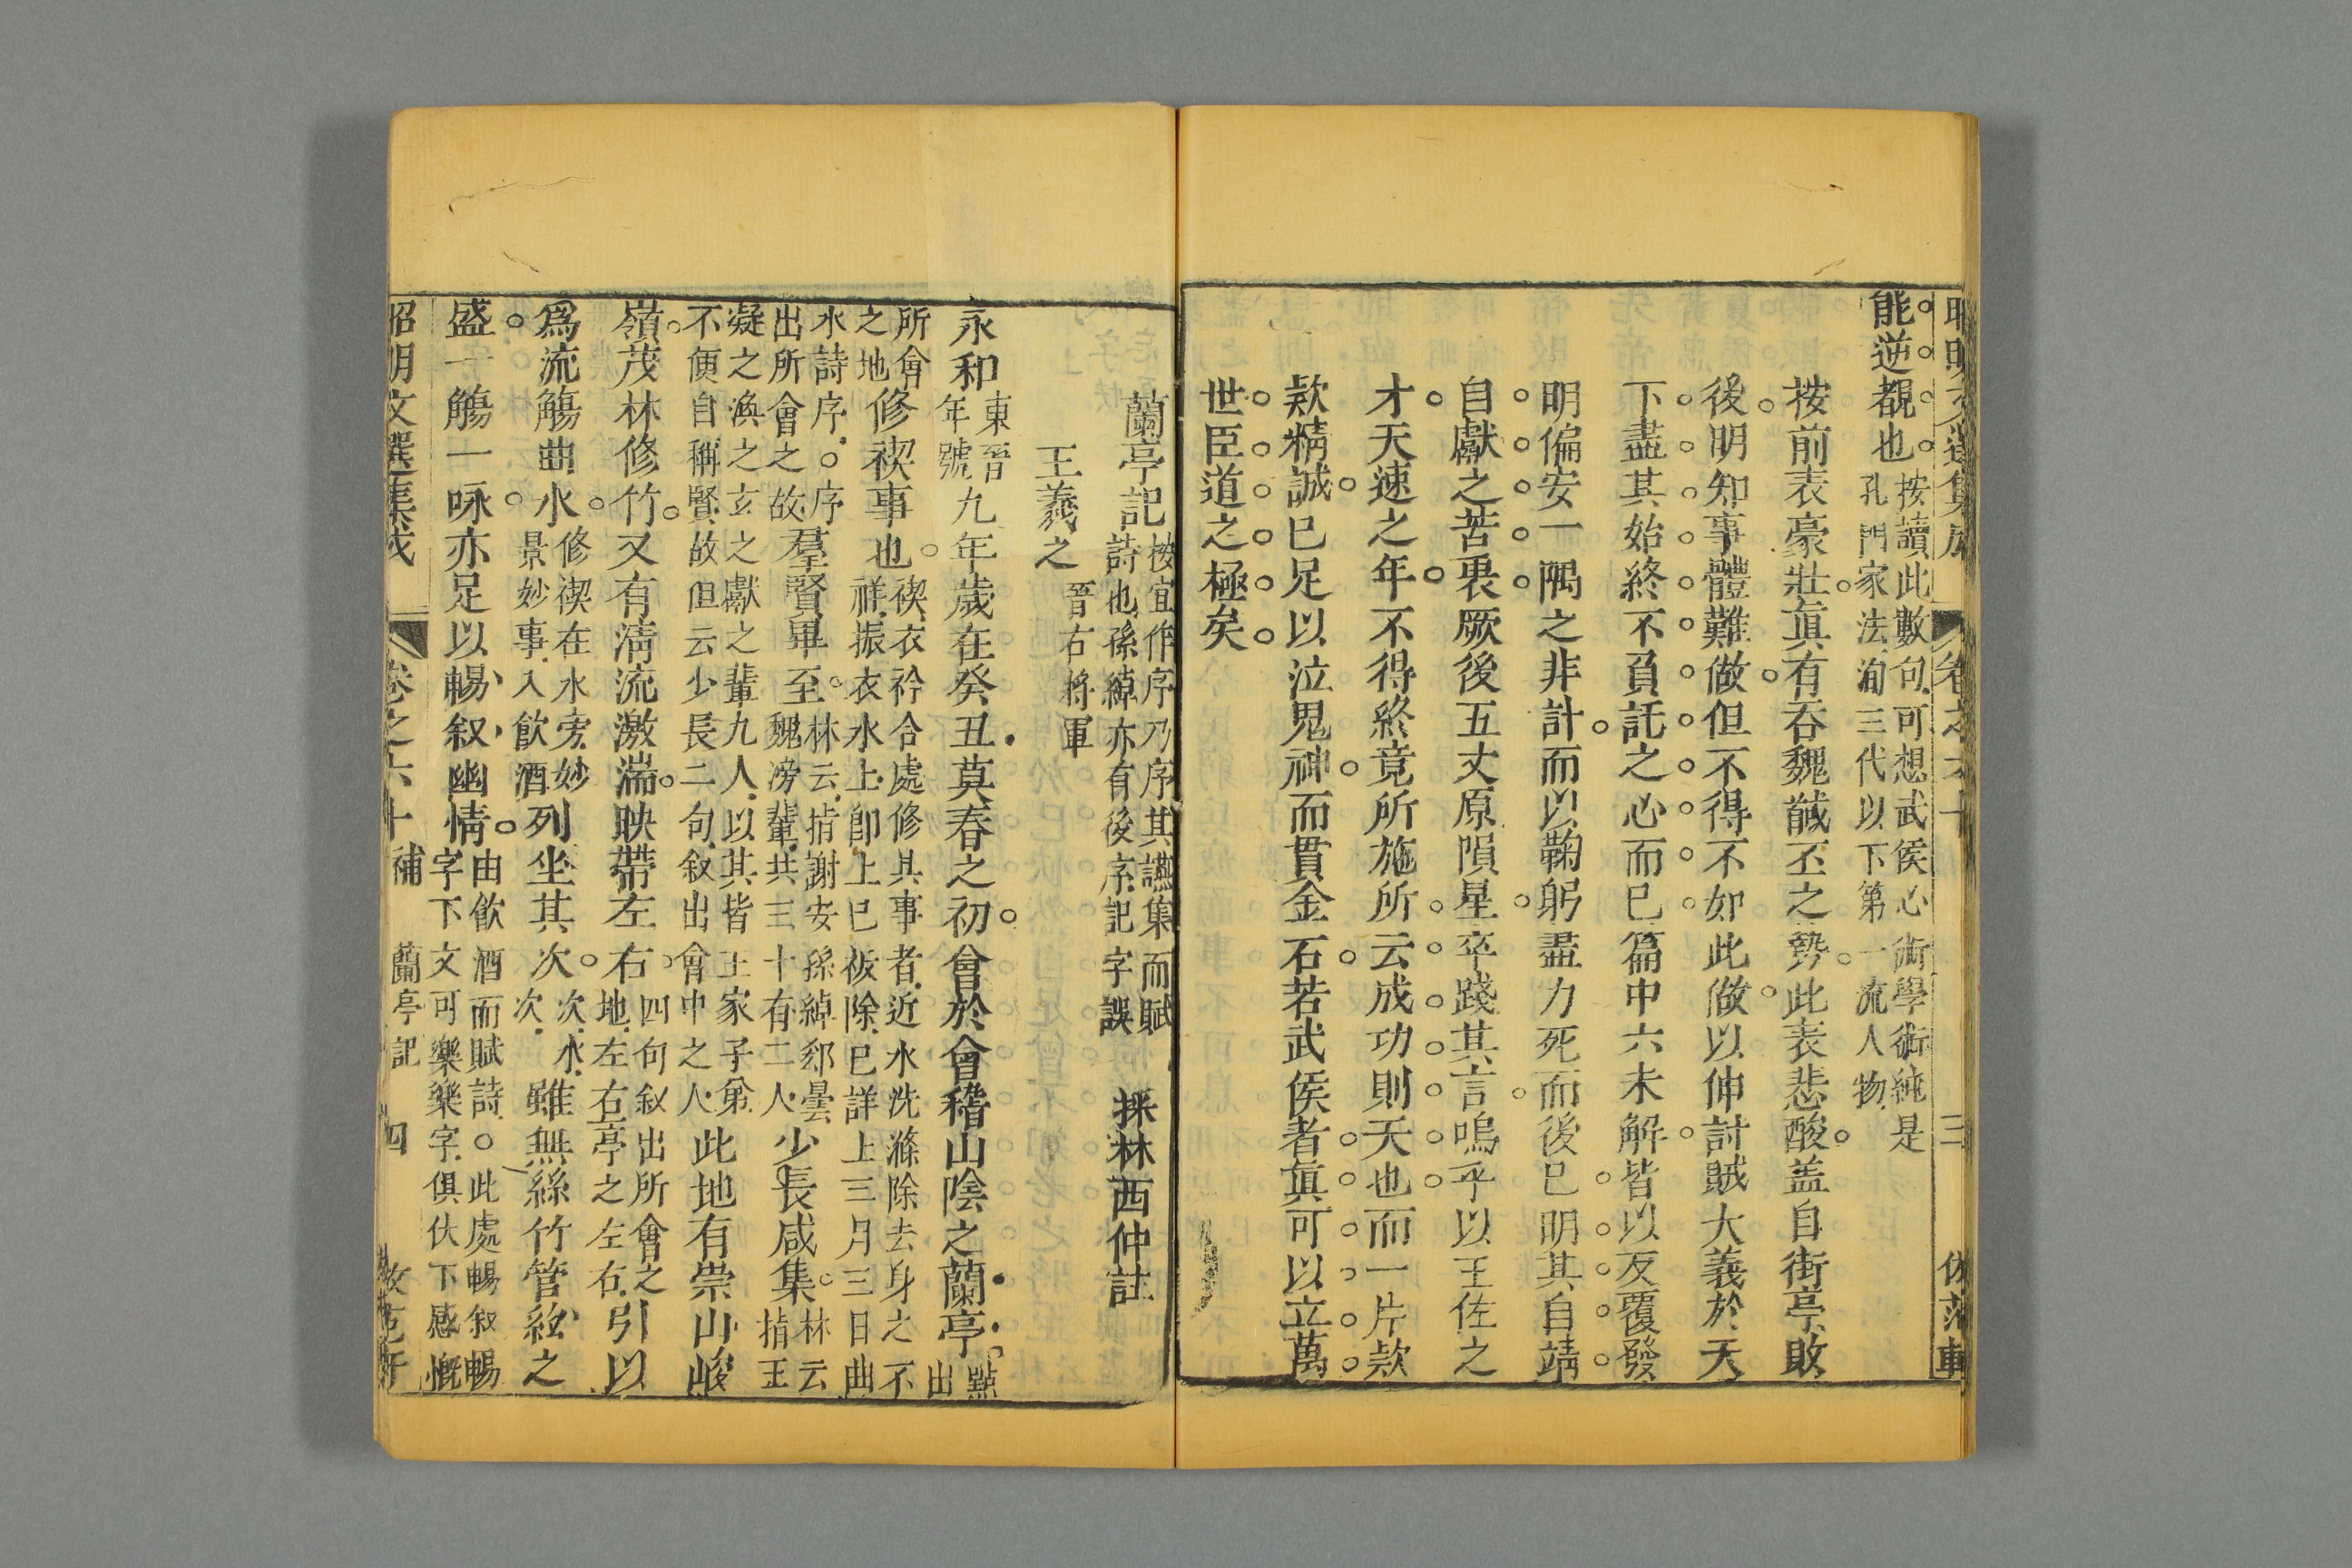 昭明文選集成 卷之六十 三 仿范軒
能逆覩也按讀此數句可想武侯心術學術純是
孔門家法洵三代以下第一流人物
按前表豪壯眞有吞魏馘丕之勢此表悲酸盖自街亭敗
後明知事體難做但不得不如此做以伸討賊大義於天
下盡其始終不負託之心而已篇中六未解皆以反覆發
明偏安一隅之非計而以鞠躬盡力死而後已明其自靖
自獻之苦衷厥後五丈原隕星卒踐其言嗚乎以王佐之
才天速之年不得終竟所施所云成功則天也而一片欵
欵精誠已足以泣鬼神而貫金石若武侯者眞可以立萬
世臣道之極矣
蘭亭記按宜作序序乃序其讌集而賦
詩也孫綽亦有後序記字誤 採林西仲註
王羲之晉右將軍
永和東晉
年號九年歲在癸丑莫春之初會於會稽山陰之蘭亭點
出
所會
之地修禊事也禊衣衿合處修其事者近水洗滌除去身之不
祥振衣水上卽上巳祓除巳詳上三月三日曲
水詩序○序
出所會之故羣賢畢至林云指謝安孫綽郄曇
魏滂輩共三十有二人少長咸集林云
指王
凝之渙之玄之獻之輩九人以其皆王家子弟
不便自稱賢故但云少長二句叙出會中之人此地有崇山峻
嶺茂林修竹又有清流激湍映帶左右四句叙出所會之
地左右亭之左右引以
爲流觴曲水修禊在水旁妙
景妙事入飮酒列坐其次次水
次雖無絲竹管絃之
盛一觴一咏亦足以暢叙幽情由飮酒而賦詩○此處暢叙暢
字下文可樂樂字俱伏下感慨
昭明文選集成 卷之六十補 蘭亭記 四 仿范軒